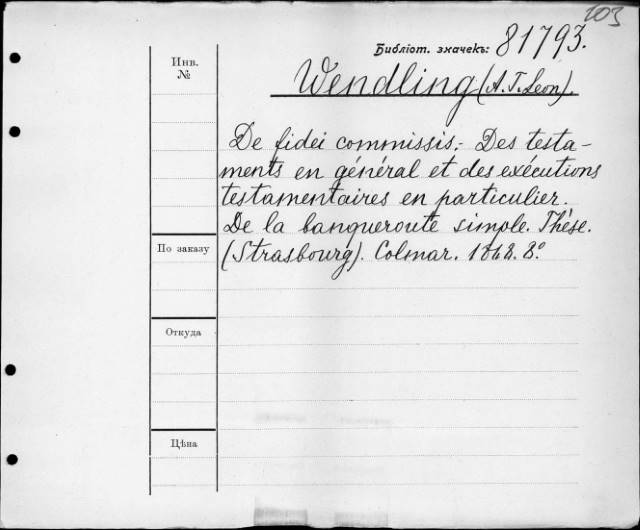 103
Библіот. значекъ: 81793.
Инв.
№
Wendling (A. T. Leon).
De fidei commissis.- Des testa-
ments en général et des exécutions
testamentaires en particulier.
De la banqueroute simple. Thèse.
(Strasbourg). Colmar. 1868. 8°.
По заказу
Откуда
Цѣна